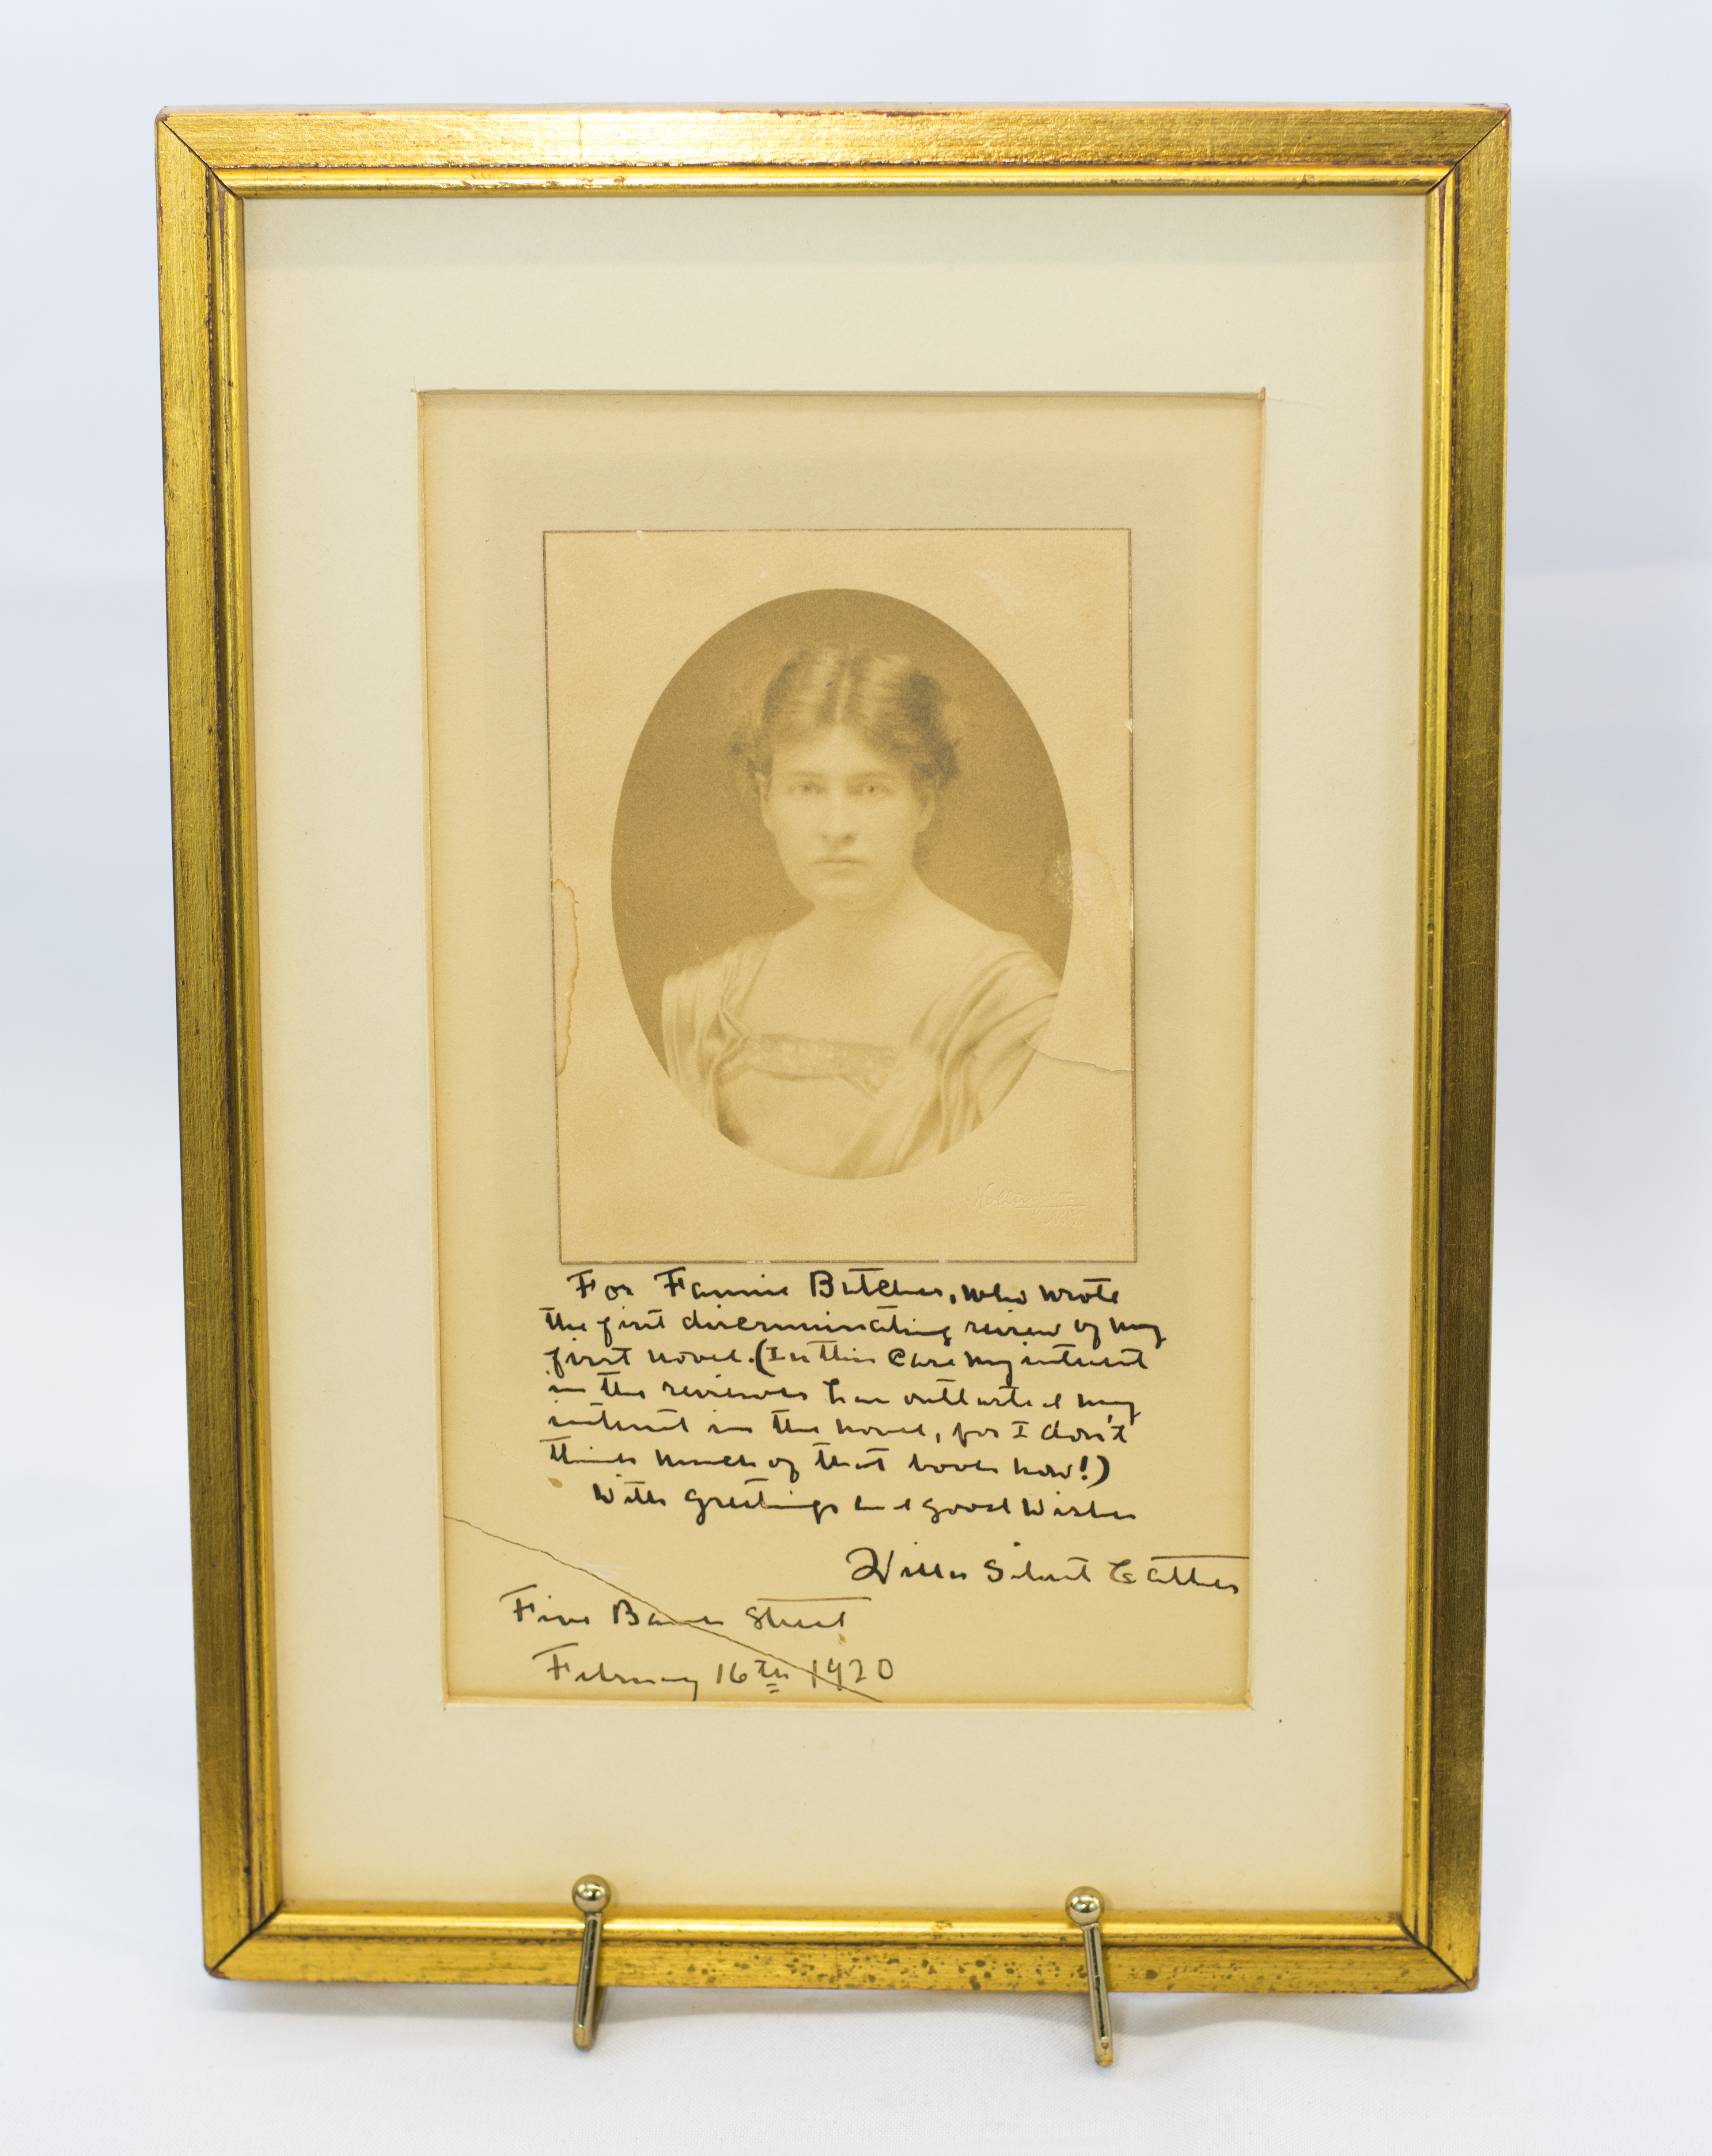 For Fannie Butcher, who wrote
the first discriminating review of my
first novel. (In this case my interest
in the reviewer has outlasted my
interest in the novel, for I don't
think much of that book now!)
With greetings and good wishes
Willa Sibert Cather
Five Bank Street
February 16th 1920